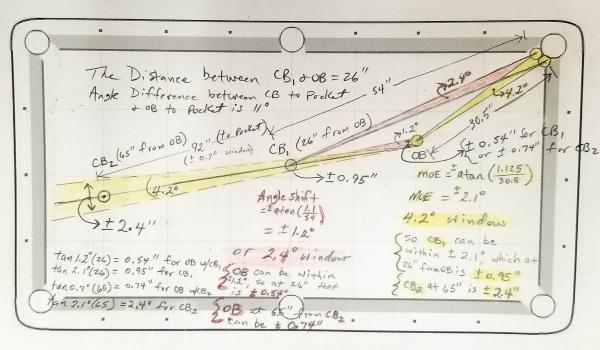 The Distance between CB1 & OB = 26"
Angle Difference between CB to Pocket
& OB to Pocket is 11°
54"
2.4°
4.2°
30.5"
1.2°
OB
CB2 (65" from OB)
92" (to Pocket)
(± 0.7° window)
CB1 (26" from OB)
± 0.54" for CB1
or ± 0.74" for CB2
4.2°
± 0.95"
± 2.4"
MOE = ± atan (1.125/30.5)
MOE = ± 2.1°
4.2° window
Angle Shift
= ± atan (1.1/54)
= ± 1.2°
or 2.4° window
So CB1 can be
within ± 2.1°, which at
26" from OB is ± 0.95"
CB2 at 65" is ± 2.4"
tan 1.2° (26) = 0.54" for OB w/CB1
tan 2.1° (26) = 0.95" for CB1
tan 0.7° (65) = 0.74" for OB w/CB2
tan 2.1° (65) = 2.4" for CB2
OB can be within
± 1.2°, so at 26" that
is ± 0.54"
OB at 65" from CB2
can be ± 0.74"